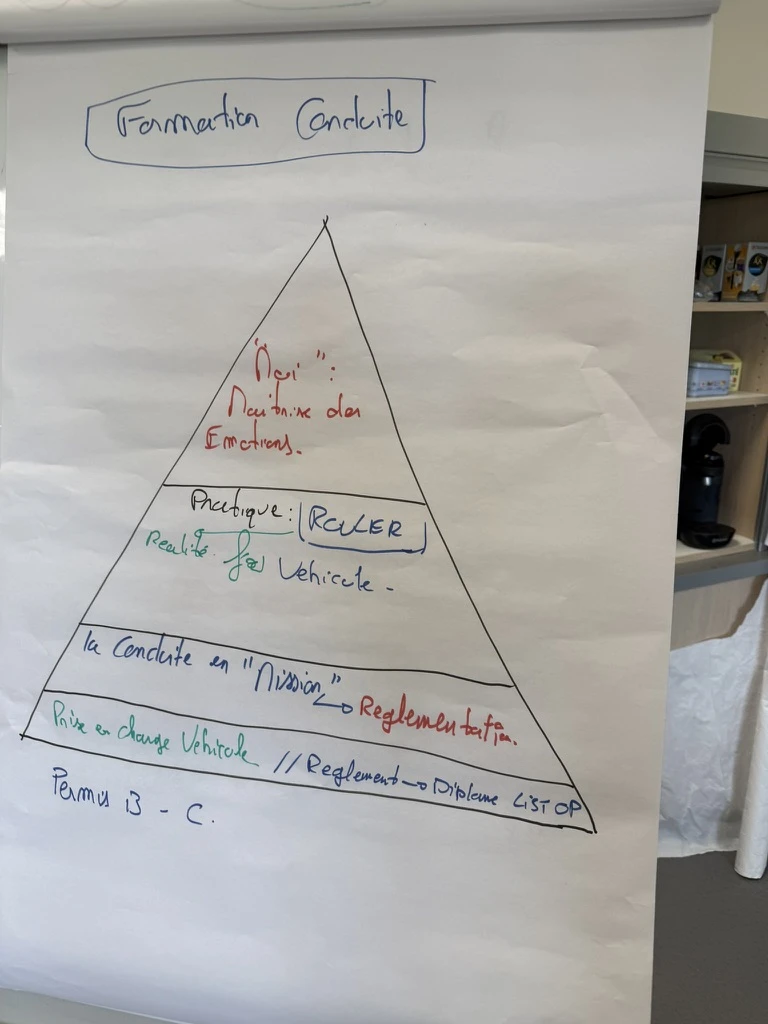 Formation Conduite
"Moi":
Maitrise des
Emotions.
Pratique: ROULER
Realité Véhicule -
la Conduite en "Mission"
→ Reglementation.
Prise en charge Véhicule // Reglement → Diplome LIST OP
Permis B - C.